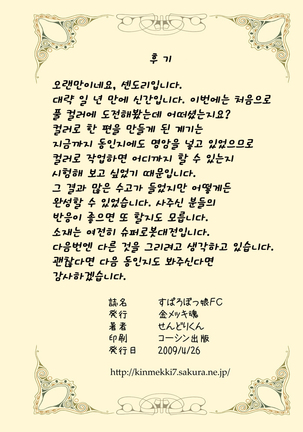 후 기
오랜만이네요, 센도리입니다.
대략 일 년 만에 신간입니다. 이번에는 처음으로
풀 컬러에 도전해봤는데 어떠셨는지요?
컬러로 한 편을 만들게 된 계기는
지금까지 동인지에도 명암을 넣고 있었으므로
컬러로 작업하면 어디까지 할 수 있는지
시험해 보고 싶었기 때문입니다.
그 결과 많은 수고가 들었지만 어떻게든
완성할 수 있었습니다. 사주신 분들의
반응이 좋으면 또 할지도 모릅니다.
소재는 여전히 슈퍼로봇대전입니다.
다음번엔 다른 것을 그리려고 생각하고 있습니다.
괜찮다면 다음 동인지도 봐주신다면
감사하겠습니다.
誌名 すぱろぼっ娘FC
発行 金メッキ魂
著者 せんどりくん
印刷 コーシン出版
発行日 2009/4/26
http://kinmekki7.sakura.ne.jp/